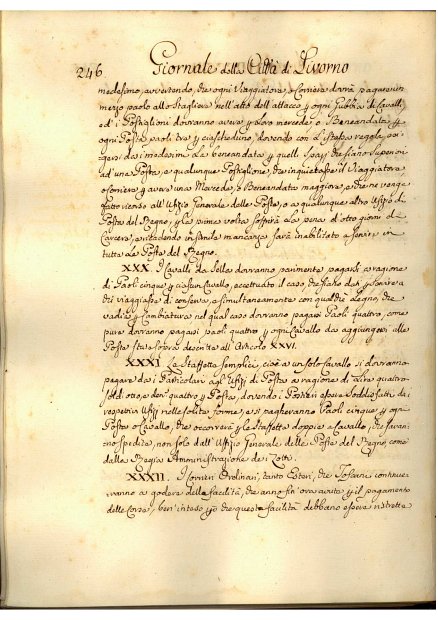 246 Giornale della Città di Livorno
medesimo, avvertendo, che ogni Viaggiatore, o Corriere dovrà pagare un
mezzo paolo allo Stalliere nell'atto dell'attacco, ogni Pubblica di Cavalli
ed i Postiglioni dovranno avere Loro mercede, o Beneandata
ogni Posta paoli tre ciascheduno, dovendo con L'istessa regola
dai medesimi La beneandata quelli che siano Superiori
ad una Posta, e qualunque Postiglione, che inquietasse il Viaggiatore
o Corriere avere una Mercede, o Beneandata maggiore, e che ne venga
fatto ricorso all'Ufizio Generale delle Poste, o a qualunque altro Ufizio di
Posta del Regno, la prima volta soffrirà La pena di otto giorni di
Carcere, e ricadendo in simile mancanza sarà inabilitato a servire in
tutte Le Poste del Regno.
XXX. I Cavalli da Sella dovranno parimente pagarsi a ragione
di Paoli cinque ciascun Cavallo, eccettuato il caso, che siano dati servire a
di viaggiare di conserva, e simultaneamente con qualche Legno, che
vada in Cambiatura nel qual caso dovranno pagarsi Paoli quattro, come
pure dovranno pagarsi paoli quattro ogni Cavallo da aggiungersi alle
Poste sopra descritta all'Articolo XXVI.
XXXI. La Staffetta semplice, cioè a un solo Cavallo si dovranno
pagare dai Particolari agl'Ufizi di Posta a ragione di Lire quattro
soldi otto, e den. quattro Posta, dovendo i Postieri essere Soddisfatti dai
respettivi Ufizi nelle solite forme, e si pagheranno Paoli cinque ogni
Posta e Cavallo, che occorrerà Le Staffette doppie a Cavallo, che saranno
spedite, non solo dall'Ufizio Generale delle Poste del Regno, come
dalla Regia Amministrazione dei Lotti.
XXXII. I Corrieri Ordinari, tanto Esteri, che Toscani continue-
ranno a godere della facilità, che anno fin'ora avuto il pagamento
delle Corse, ben'inteso che questa facilità debbano essere ristrette